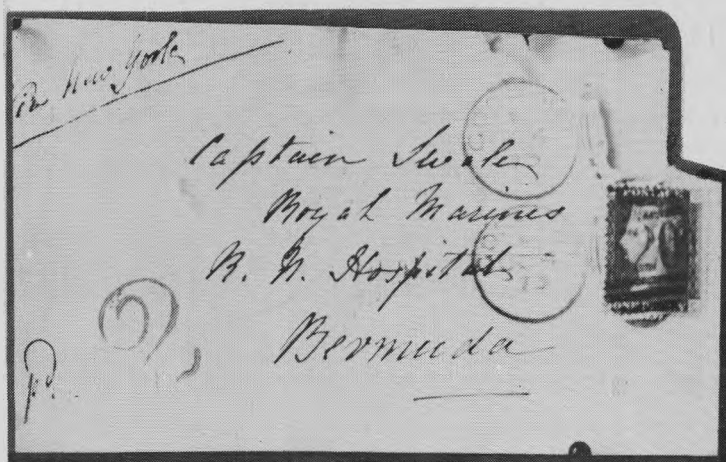 Per New York
Captain Swale
Royal Marines
R. N. Hospital
Bermuda
pd.